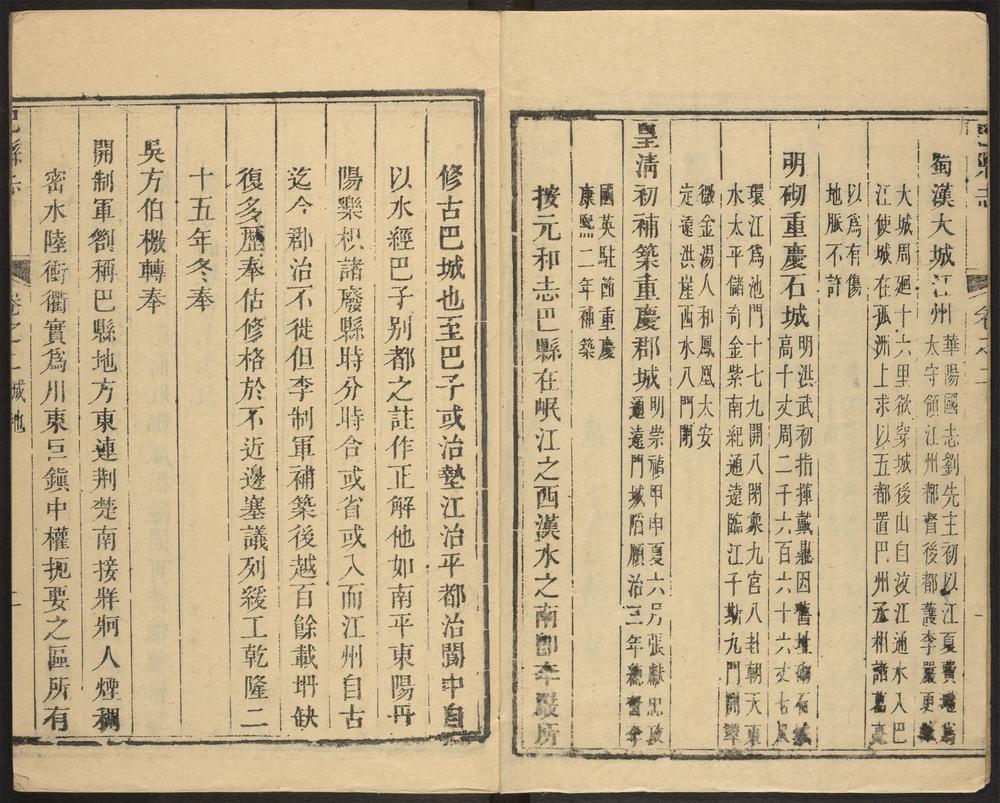 蜀漢大城江州華陽國志劉先主初以江夏費瓘爲
太守領江州都督後都護李嚴更城
大城周廻十六里欲穿城後山自汶江通水入巴
江使城在孤洲上求以五都置巴州丞相諸葛亮
以爲有傷
地脈不許
明砌重慶石城明洪武初指揮戴鼎因舊址砌石城
高十丈周二千六百六十六丈七尺
環江爲池門十七九開八閉象九宮八卦朝天東
水太平儲奇金紫南紀通遠臨江千廝九門開翠
微金湯人和鳳凰太安
定遠洪崖西水八門閉
皇清初補築重慶郡城明崇禎甲申夏六月張獻忠攻
通遠門城陷順治三年總督李
國英駐節重慶
康熙二年補築
按元和志巴縣在岷江之西漢水之南卽李嚴所
修古巴城也至巴子或治墊江治平都治閬中自
以水經巴子别都之註作正解他如南平東陽丹
陽樂枳諸廢縣時分時合或省或入而江州自古
迄今郡治不徙但李制軍補築後越百餘載坍缺
復多歷奉估修格於不近邊塞議列緩工乾隆二
十五年冬奉
吳方伯檄轉奉
開制軍劄稱巴縣地方東連荆楚南接牂牁人煙稠
密水陸衝衢實爲川東巨鎮中權扼要之區所有
巴縣志
卷之二 城池
二